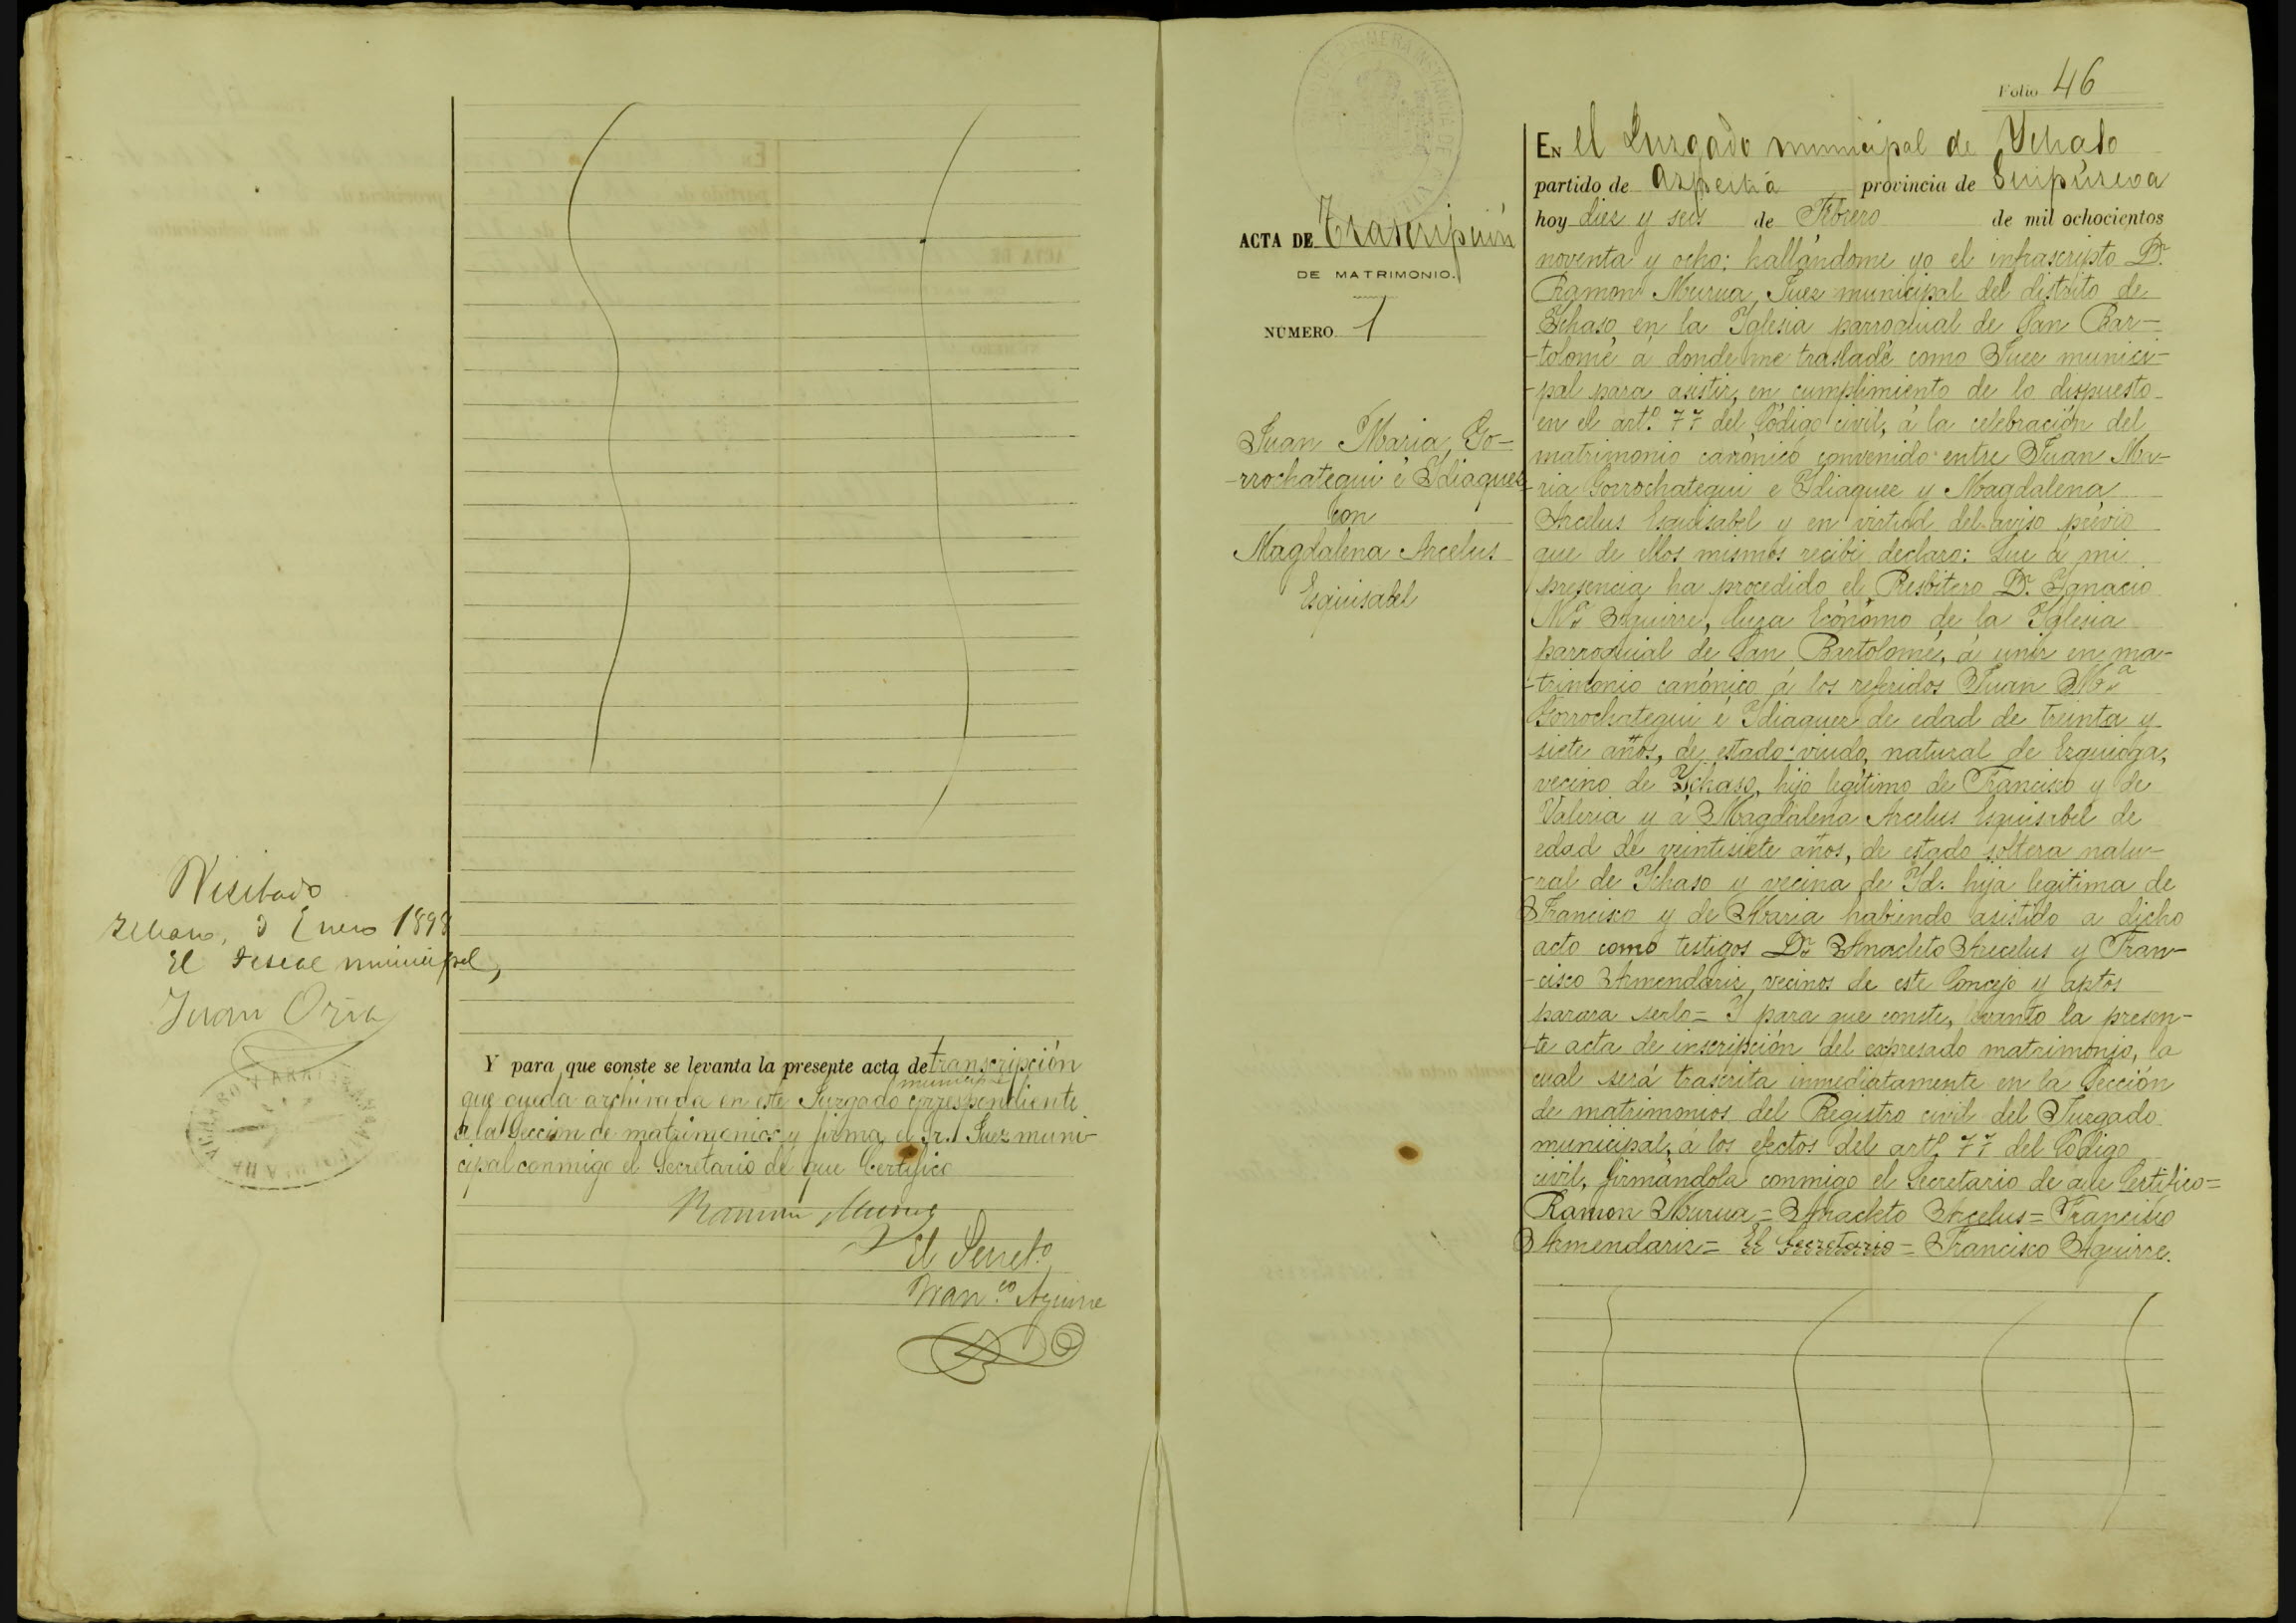 Visitado
Ichaso, 3 Enero 1898
El Fiscal municipal,
Juan Oria
Y para que conste se levanta la presente acta de transcripción
municipal
que queda archivada en este Juzgado correspondiente
á la Sección de matrimonios y firma el Sr. Juez muni-
cipal conmigo el Secretario de que Certifico
Ramon Murua
El Secret.o
Fran.co Aguirre
Folio 46
ACTA DE Trascripción
DE MATRIMONIO.
NÚMERO 1
Juan Maria Go-
-rrochategui é Ydiaquez
con
Magdalena Arcelus
Esquisabel
EN el Juzgado municipal de Ychaso
partido de Azpeitia provincia de Guipúzcoa
hoy diez y seis de Febrero de mil ochocientos
noventa y ocho; hallándome yo el infrascripto Dn
Ramon Murua, Juez municipal del distrito de
Ychaso, en la Yglesia parroquial de San Bar-
-tolomé á donde me trasladé como Juez munici-
-pal para asistir, en cumplimiento de lo dispuesto
en el art.o 77 del Código civil, á la celebración del
matrimonio canónico convenido entre Juan Ma-
-ria Gorrochategui e Ydiaquez y Magdalena
Arcelus Esquisabel y en virtud del aviso prévio
que de ellos mismos recibi declaro: Que á mi
presencia ha procedido el Presbitero Dn Ygnacio
M.a Aguirre, Cura Ecónomo de la Yglesia
parroquial de San Bartolomé, á unir en ma-
-trimonio canónico á los referidos Juan M.a
Gorrochategui é Ydiaquez de edad de treinta y
siete años, de estado viudo, natural de Ezquioga,
vecino de Ychaso, hijo legítimo de Francisco y de
Valeria y á Magdalena Arcelus Esquisabel de
edad de veintisiete años, de estado soltera natu-
-ral de Ychaso y vecina de Yd. hija legitima de
Francisco y de Maria habiendo asistido a dicho
acto como testigos Dn Anacleto Arcelus y Fran-
-cisco Armendariz, vecinos de este Concejo y aptos
parara serlo= Y para que conste, levanto la presen-
-te acta de inscripción del expresado matrimonio, la
cual será trascrita inmediatamente en la Sección
de matrimonios del Registro civil del Juzgado
municipal, á los efectos del art.o 77 del Código
civil, firmándola conmigo el Secretario de que Certifico=
Ramon Murua= Anacleto Arcelus= Francisco
Armendariz= El Secretario= Francisco Aguirre.